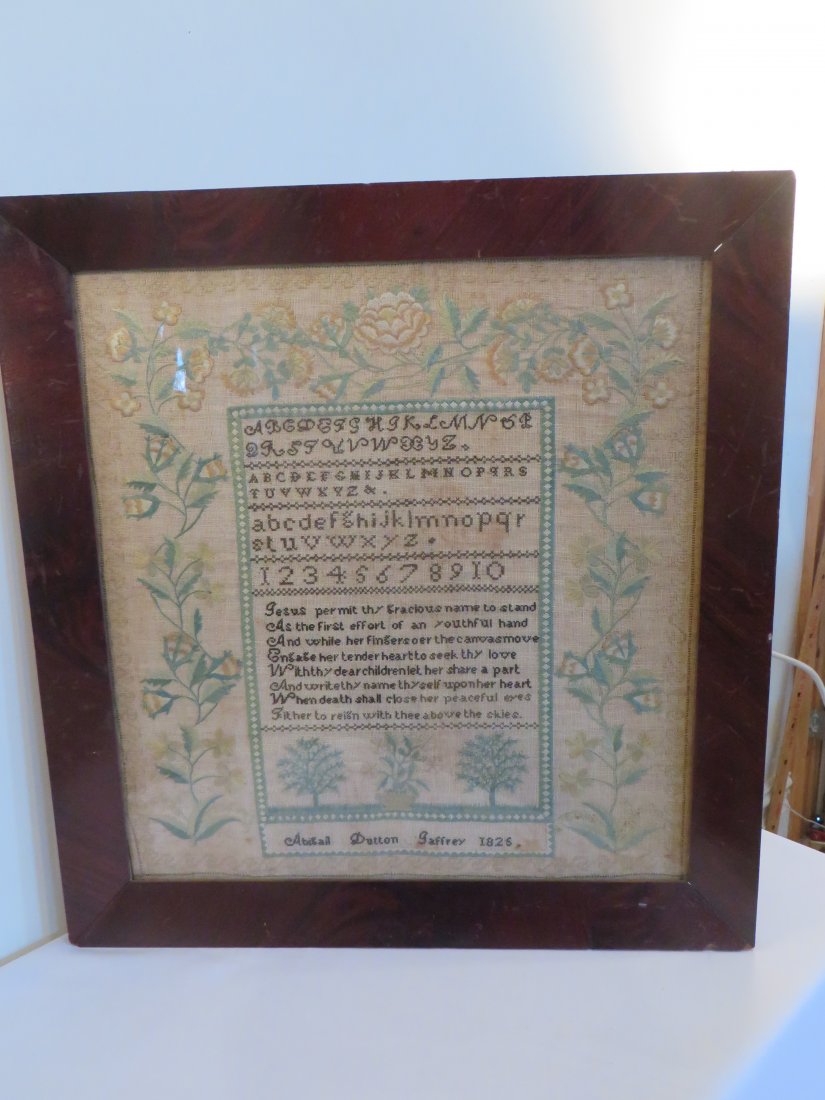 ABCDEFGHIJKLMNOP
QRSTUVWXYZ.
ABCDEFGHIJKLMNOPQRS
TUVWXYZ&.
abcdefghijklmnopqr
stuvwxyz.
12345678910
Jesus permit thy gracious name to stand
As the first effort of an youthful hand
And while her fingers oer the canvas move
Engage her tender heart to seek thy love
With thy dear children let her share a part
And write thy name thyself upon her heart
When death shall close her peaceful eyes
to reign with thee above the skies.
Abigail Dutton Jaffrey 1826.